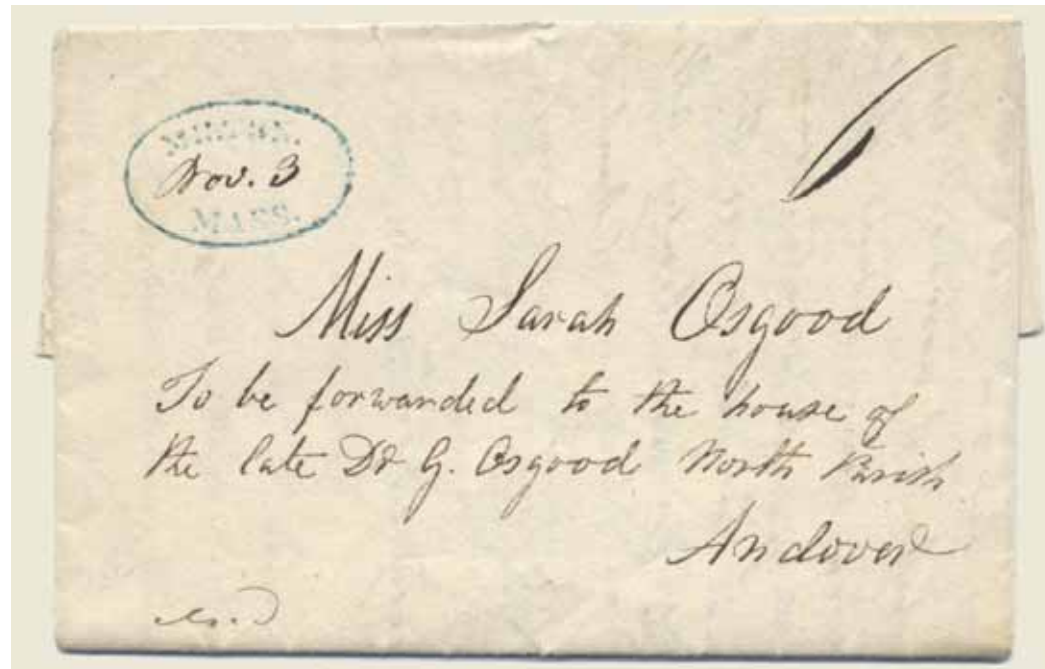 MILTON.
Nov. 3
MASS.
6
Miss Sarah Osgood
To be forwarded to the house of
the late Dr G. Osgood North Parish
Andover